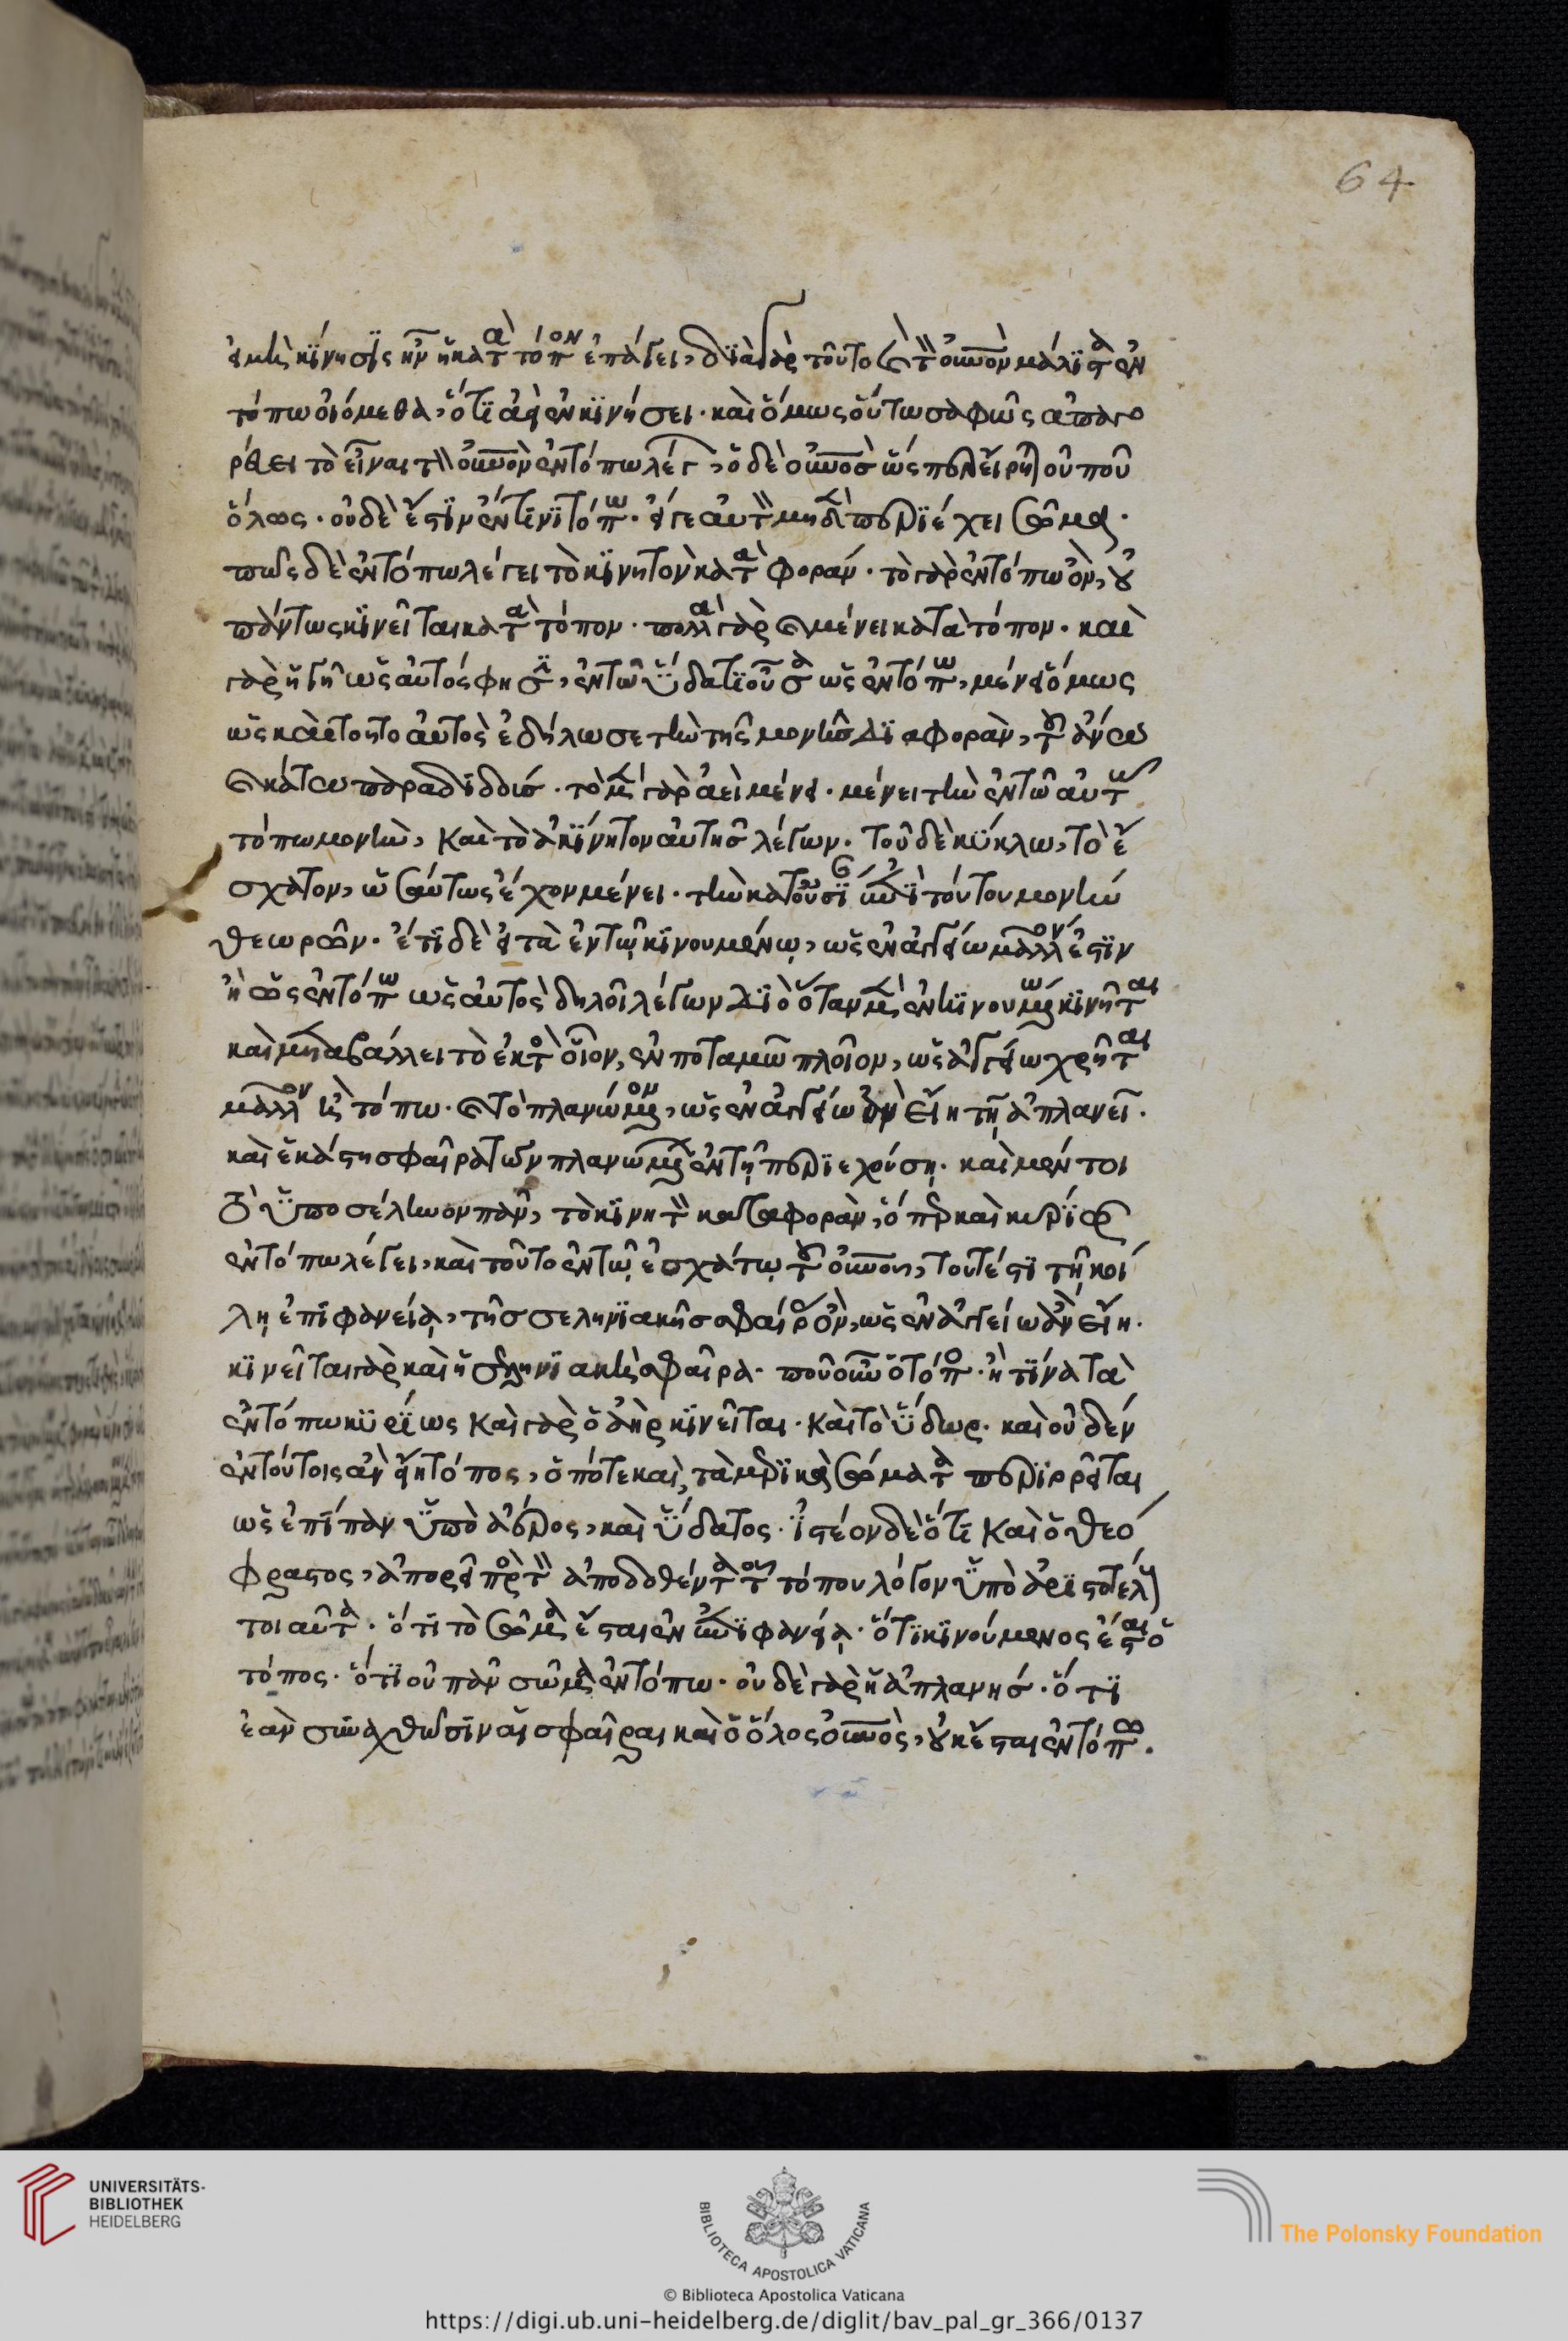 64
εἰ μὴ κίνησίς ἦν ἡ κατὰ τόπον ἐπάγει, διὰ γὰρ τοῦτο καὶ τὸν οὐνον μάλιστα ἐν
τόπω οἰόμεθα, ὅτι ἀεὶ ἐν κινήσει. καὶ ὅμως οὕτω σαφῶς ἀπαγο
ρεύει τὸ εἶναι τὸν οὐνον ἐν τόπω λέγων, ὁ δὲ οὐνοσ ὡς προείρηται οὐ που
ὅλως. οὐδὲ ἔστιν ἐν τίνι τόπω. εἴ γε αὐτὸν μηδὲν περιέχει σῶμα.
πῶς δὲ ἐν τόπω λέγει τὸ κινητὸν κατὰ φοράν. τὸ γὰρ ἐν τόπω ὂν, οὐ
πάντως κινεῖται κατὰ τόπον. πολλὰ γὰρ καὶ μένει κατὰ τόπον. καὶ
γὰρ ἡ γῆ ὡς αὐτός φησιν, ἐν τῶ ὕδατι οὖσα ὡς ἐν τόπω, μένει ὅμως
ὡς καὶ τοῦτο αὐτὸς ἐδήλωσε τὴν τῆς μονῆσ διαφορὰν, τοῦ ἄνω
καὶ κάτω παραδιδούσ. τὸ μὲν γὰρ ἀεὶ μένει. μένει τὴν ἐν τῶ αὐτῶ
τόπω μονὴν, καὶ τὸ ἀκίνητον αὐτησ λέγων. τοῦ δὲ κύκλω, τὸ ἔ
σχατον, ὡσαύτως ἔχον μένει. τὴν κατ οὐσίαν καὶ ἐπὶ τούτου μονὴν
θεωρῶν. ἔτι δὲ εἰ τὰ ἐν τῷ κινουμένῳ, ὡς ἐν ἀγγείω μᾶλλόν ἐστιν
ἢ ὡς ἐν τόπω ὡς αὐτὸς δηλοῖ λέγων διὸ ὅταν μὲν ἐν κινουμένω κινῆται
καὶ μεταβάλλει τὸ ἐκτὸσ οἷον, ἐν ποταμῶ πλοῖον, ὡς ἀγγείω χρῆται
μᾶλλον ἢ τόπω. καὶ τὸ πλανώμενον, ὡς ἐν ἀγγείω ἂν εἴη τῇ ἀπλανεῖ.
καὶ ἑκάστη σφαῖρα τῶν πλανωμένων ἐν τῇ περιεχούσῃ. καὶ μέν τοι
τὸ ὑπο σέλήνην πᾶν, τὸ κινητὸν κατα φορὰν, ὅ περ καὶ κυρίως
ἐν τόπω λέγει, καὶ τοῦτο ἐν τῷ ἐσχάτῳ τοῦ οὐνου, τουτέστι τῇ κοί
λῃ ἐπιφανείᾳ, τῆσ σεληνιακῆσ σφαίρας ὂν, ὡς ἐν ἀγγείω ἂν εἴη.
κινεῖται γὰρ καὶ ἡ σεληνιακὴ σφαῖρα. ποῦ οὖν ὁ τόπος. ἢ τίνα τὰ
ἐν τόπω κυρίως καὶ γὰρ ὁ ἀὴρ κινεῖται. καὶ τὸ ὕδωρ. καὶ οὐδέν
ἐν τούτοις ἂν εἴη τόπος, ὁπότε καὶ, τὰ μερικὰ σώματα περιρρεῖται
ὡς ἐπίπαν ὑπὸ ἀέρος, καὶ ὕδατος. ἰστέον δὲ ὅτι καὶ ὁ θεό
φραστος, ἀπορεῖ πρὸς τὸν ἀποδοθέντα τοῦ τόπου λόγον ὑπὸ ἀριστοτέλους
τοιαῦτα. ὅτι τὸ σῶμα ἔσται ἐν ἐπιφανείᾳ. ὅτι κινούμενος ἔσται ὁ
τόπος. ὅτι οὐ πᾶν σῶμα ἐν τόπω. οὐδὲ γὰρ ἡ ἀπλανησ. ὅτι
ἐὰν συναχθῶσιν αἱ σφαῖραι καὶ ὁ ὅλος οὐνος, οὐκ ἔσται ἐν τόπω.
UNIVERSITÄTS-
BIBLIOTHEK
HEIDELBERG
BIBLIOTECA APOSTOLICA VATICANA
The Polonsky Foundation
© Biblioteca Apostolica Vaticana
https://digi.ub.uni-heidelberg.de/diglit/bav_pal_gr_366/0137